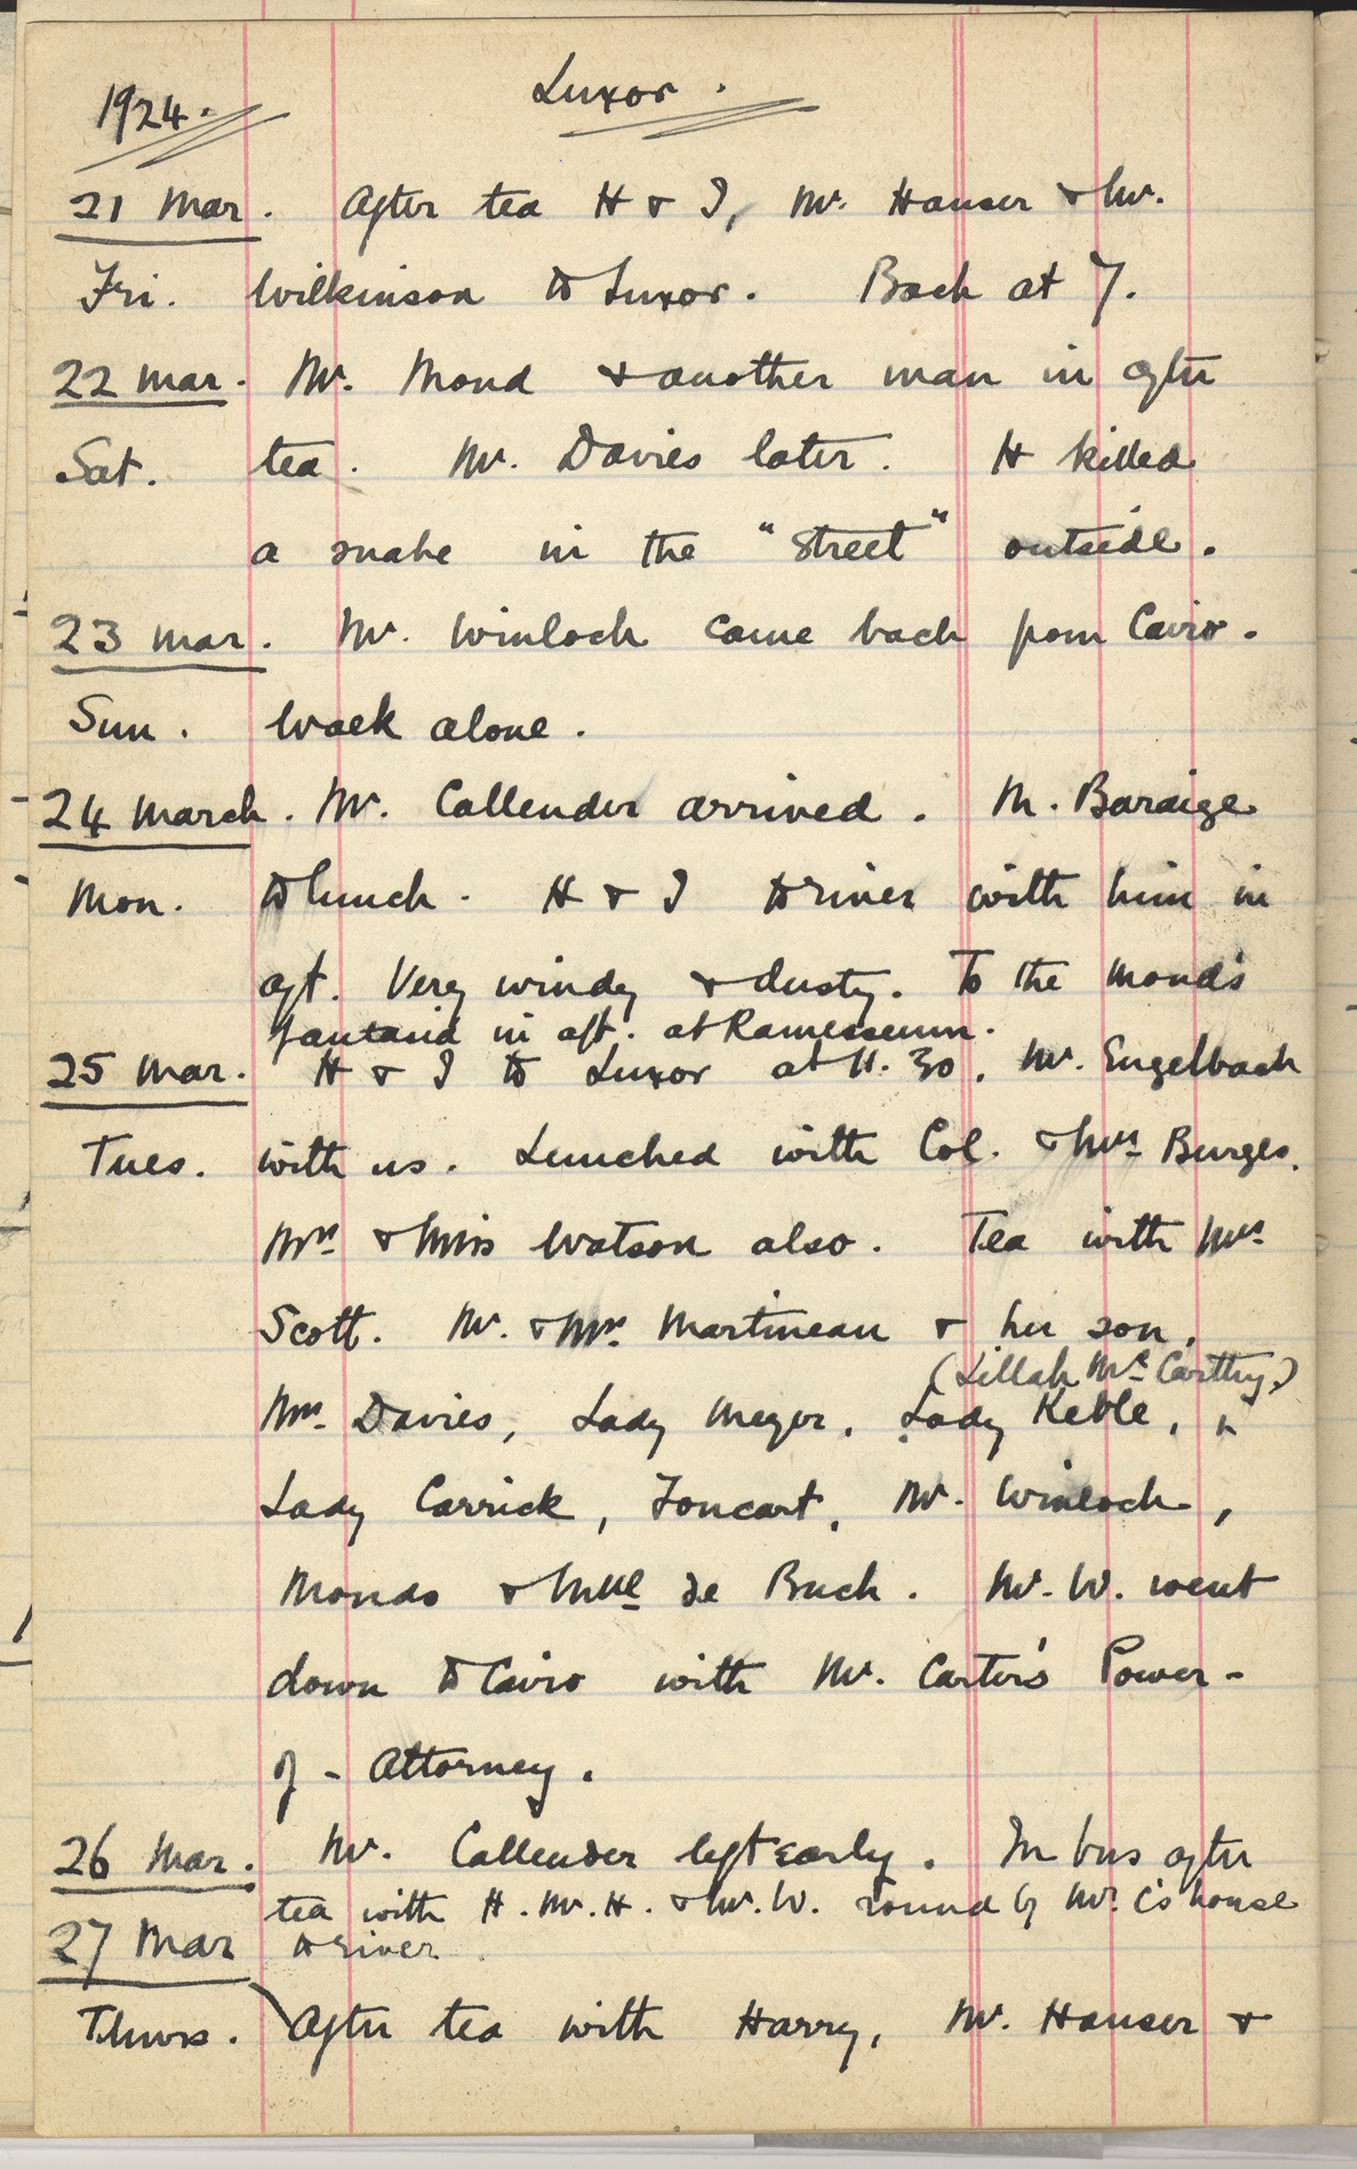 1924. Luxor.
21 Mar. After tea H & I, Mr. Hauser & Mr.
Fri. Wilkinson to Luxor. Back at 7.
22 Mar. Mr. Mond & another man in after
Sat. tea. Mr. Davies later. H killed
a snake in the "street" outside.
23 Mar. Mr. Winlock came back from Cairo.
Sun. Walk alone.
24 March. Mr. Callender arrived. M. Baraize
Mon. to lunch. H & I to river with him in
aft. Very windy & dusty. To the Mond's
fantasia in aft. at Ramesseum.
25 Mar. H & I to Luxor at 11.30. Mr. Engelbach
Tues. with us. Lunched with Col. & Mrs Burges.
Mrs & Miss Watson also. Tea with Mrs
Scott. Mr. & Mrs. Martineau & her son,
(Lillah McCarthy)
Mrs Davies, Lady Meyer, Lady Keble,
Lady Carrick, Foucart, Mr. Winlock,
Monds & Mlle de Buck. Mr. W. went
down to Cairo with Mr. Carter's Power-
of-Attorney.
26 Mar. Mr. Callender left early. In bus after
tea with H. Mr. H. & Mr. W. round by Mr. C's house
27 Mar to river.
Thurs. After tea with Harry, Mr. Hauser &